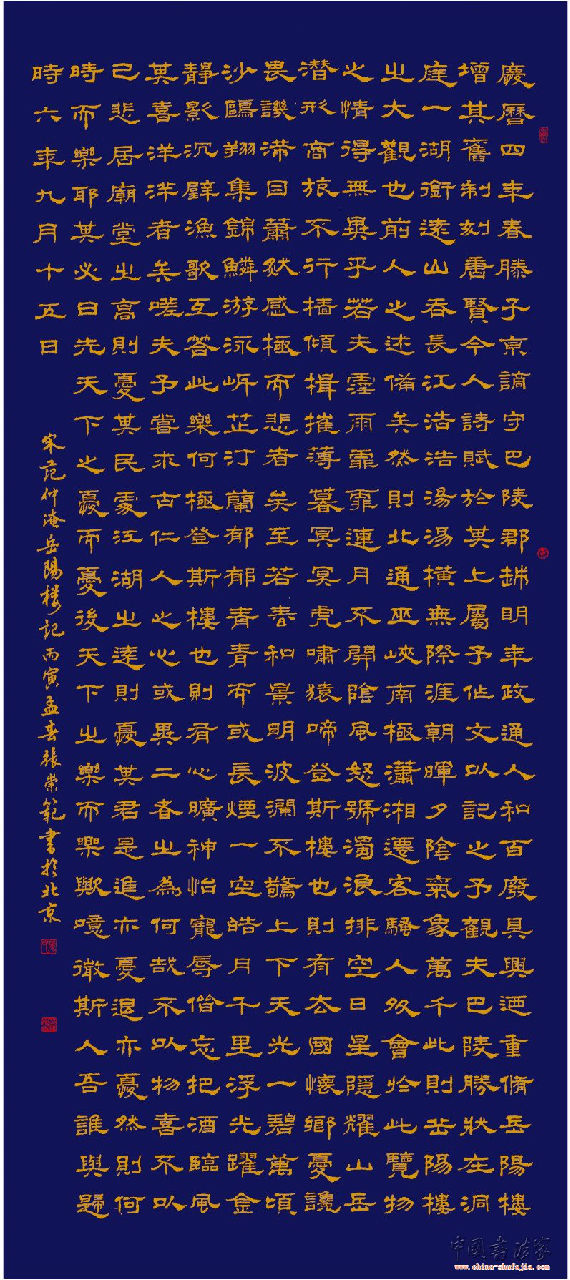 慶曆四年春滕子京謫守巴陵郡越明年政通人和百廢具興迺重脩岳陽樓
增其舊制刻唐賢今人詩賦於其上屬予作文以記之予觀夫巴陵勝狀在洞
庭一湖銜遠山吞長江浩浩湯湯橫無際涯朝暉夕陰氣象萬千此則岳陽樓
之大觀也前人之述備矣然則北通巫峽南極瀟湘遷客騷人多會於此覽物
之情得無異乎若夫霪雨霏霏連月不開陰風怒號濁浪排空日星隱耀山岳
潛形商旅不行檣傾楫摧薄暮冥冥虎嘯猿啼登斯樓也則有去國懷鄉憂讒
畏譏滿目蕭然感極而悲者矣至若春和景明波瀾不驚上下天光一碧萬頃
沙鷗翔集錦鱗游泳岸芷汀蘭郁郁青青而或長煙一空皓月千里浮光躍金
靜影沉璧漁歌互答此樂何極登斯樓也則有心曠神怡寵辱偕忘把酒臨風
其喜洋洋者矣嗟夫予嘗求古仁人之心或異二者之為何哉不以物喜不以
己悲居廟堂之高則憂其民處江湖之遠則憂其君是進亦憂退亦憂然則何
時而樂耶其必曰先天下之憂而憂後天下之樂而樂歟噫微斯人吾誰與歸
時六年九月十五日
宋范仲淹岳陽樓記丙寅孟春張崇範書於北京
中国书法家
www.china-shufajia.com